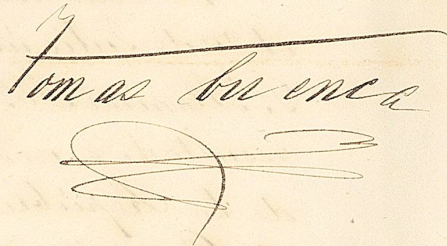 Tomas Cuenca